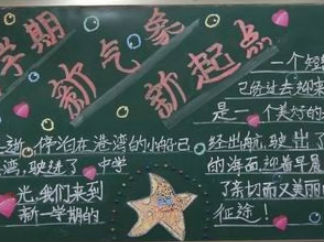 学期
新气象
新起点
一个短
已经过去迎来
是一个美好的
逝,停泊在港湾的小船已
湾,驶进了中学
光,我们来到
新一学期的
经出航,驶出了
的海面,迎着早晨
了亲切而又美丽
征途!